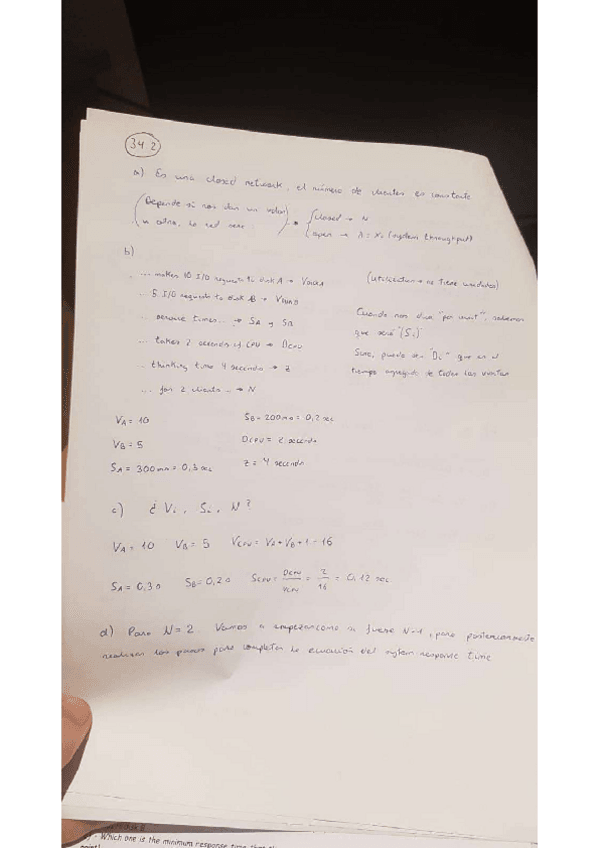 34.2
a) Es una closed network, el número de clientes es constante
(Depende si nos dan un valor
u otro, la red sera:
closed → N
open → λ = X₀ (system throughput)
b)
... makes 10 I/O requests to disk A →
.. 5 I/O requests to disk B →
.. service times... → SA y SB
.. takes 2 seconds of CPU → DCPU
. thinking time 4 seconds → Z
... for 2 clients .. → N
(utilization → no tiene unidades)
Cuando nos dice "por visit", sabemos
que será "(Si)"
Sino, puede ser "Di" que es el
tiempo agregado de todas las visitas
VA = 10
VB = 5
SA = 300 = 0,3 sec
SB = 200 = 0,2 sec
DCPU = 2 seconds
Z = 4 seconds
c) ¿ Vi, Si, N ?
VA = 10 VB = 5 VCPU = VA + VB + 1 = 16
SA = 0,3 s SB = 0,2 s SCPU = DCPU / VCPU = 2 / 16 = 0,12 sec
d) Para N = 2. Vamos a empezar como si fuese N=1, para posteriormente
realizar los pasos para completar la ecuación del system response time
- Which one is the minimum response time